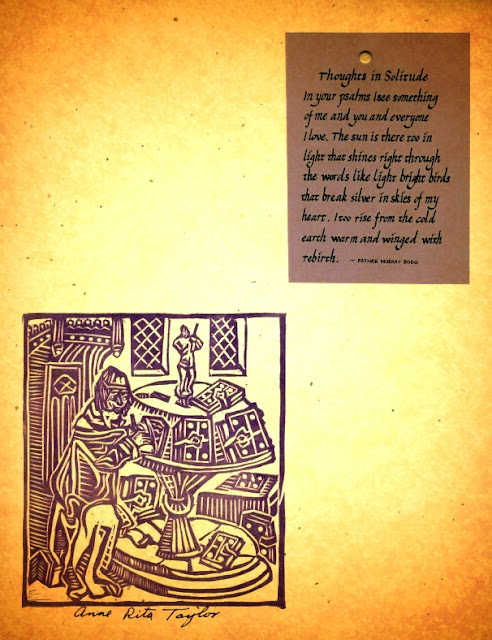 Thoughts in Solitude
In your psalms I see something
of me and you and everyone
I love. The sun is there too in
light that shines right through
the words like light bright birds
that break silver in skies of my
heart. I too rise from the cold
earth warm and winged with
rebirth. — FATHER MURRAY BODO
Anne Rita Taylor